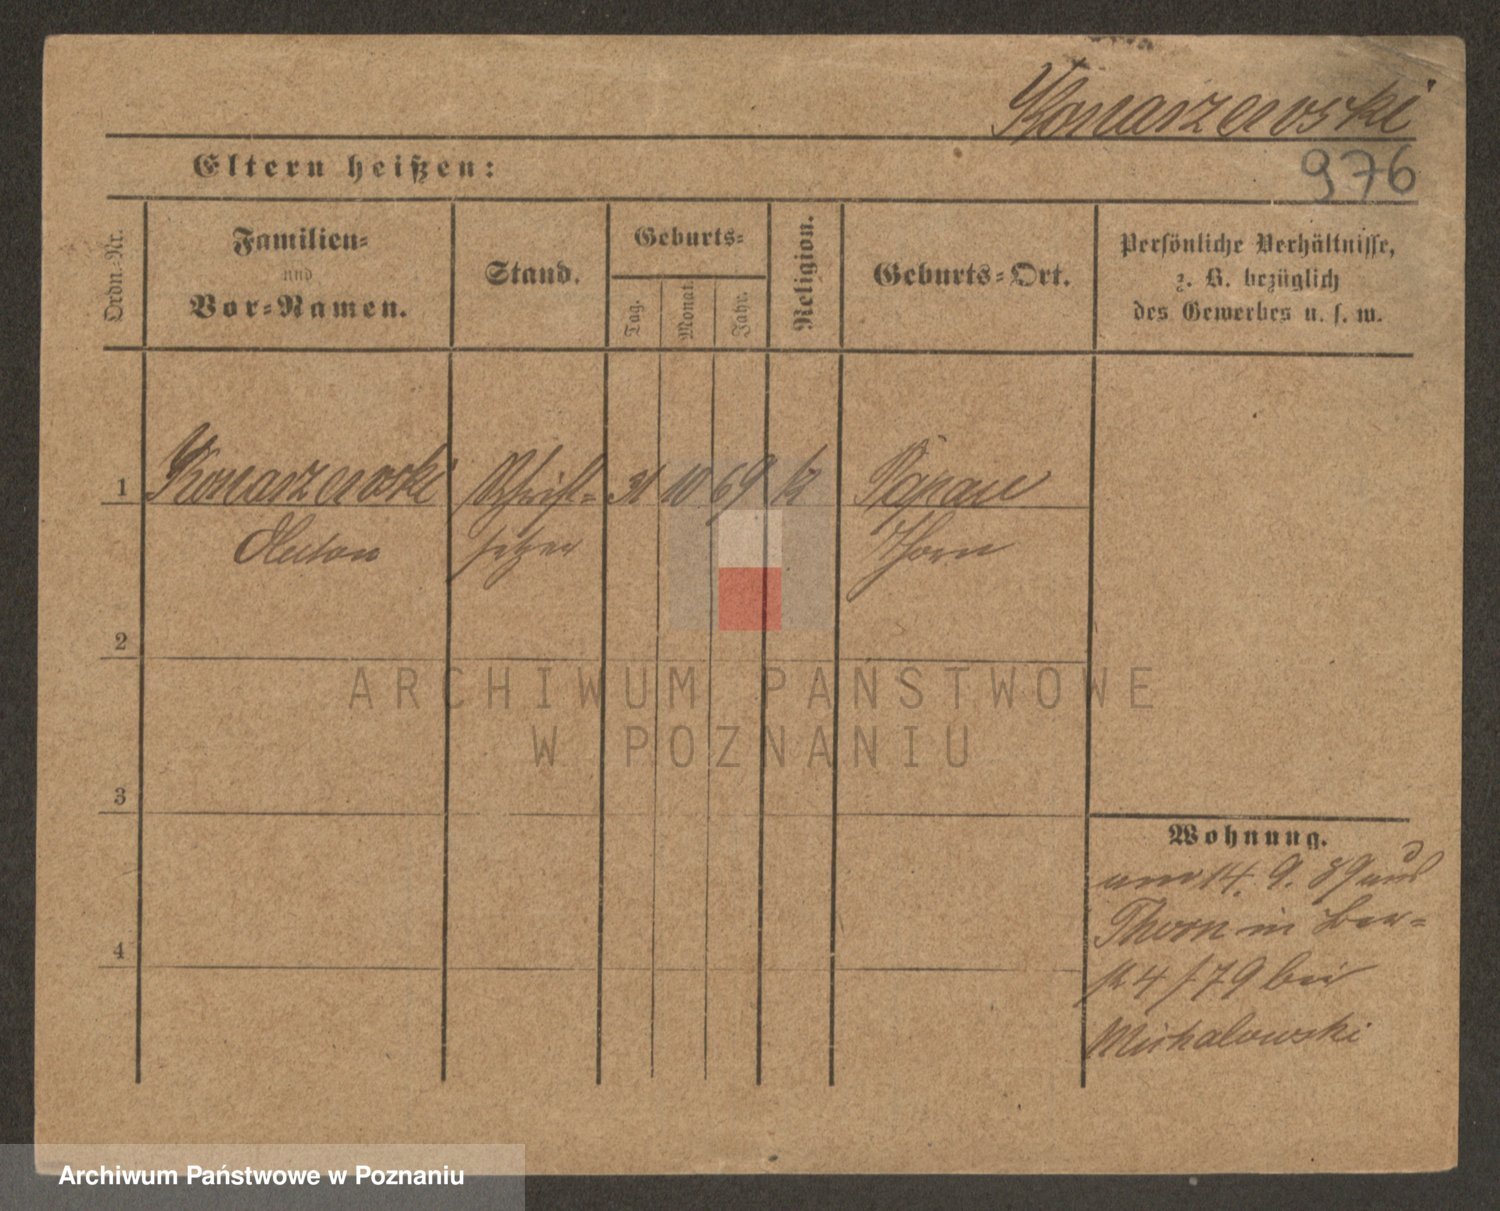 Konarzewski
976
Eltern heißen:
Ordn.-Nr.
Familien-
und
Vor-Namen.
Stand.
Geburts-
Tag.
Monat.
Jahr.
Religion.
Geburts-Ort.
Persönliche Verhältnisse,
z. B. bezüglich
des Gewerbes u. s. w.
1
Konarzewski
Schrift-
31
10
69
k
Papau
Anton
setzer
Thorn
2
ARCHIWUM PAŃSTWOWE
W POZNANIU
3
Wohnung.
14. 9. 89 aus
Thorn in
4/79 bei
Michalowski
4
Archiwum Państwowe w Poznaniu